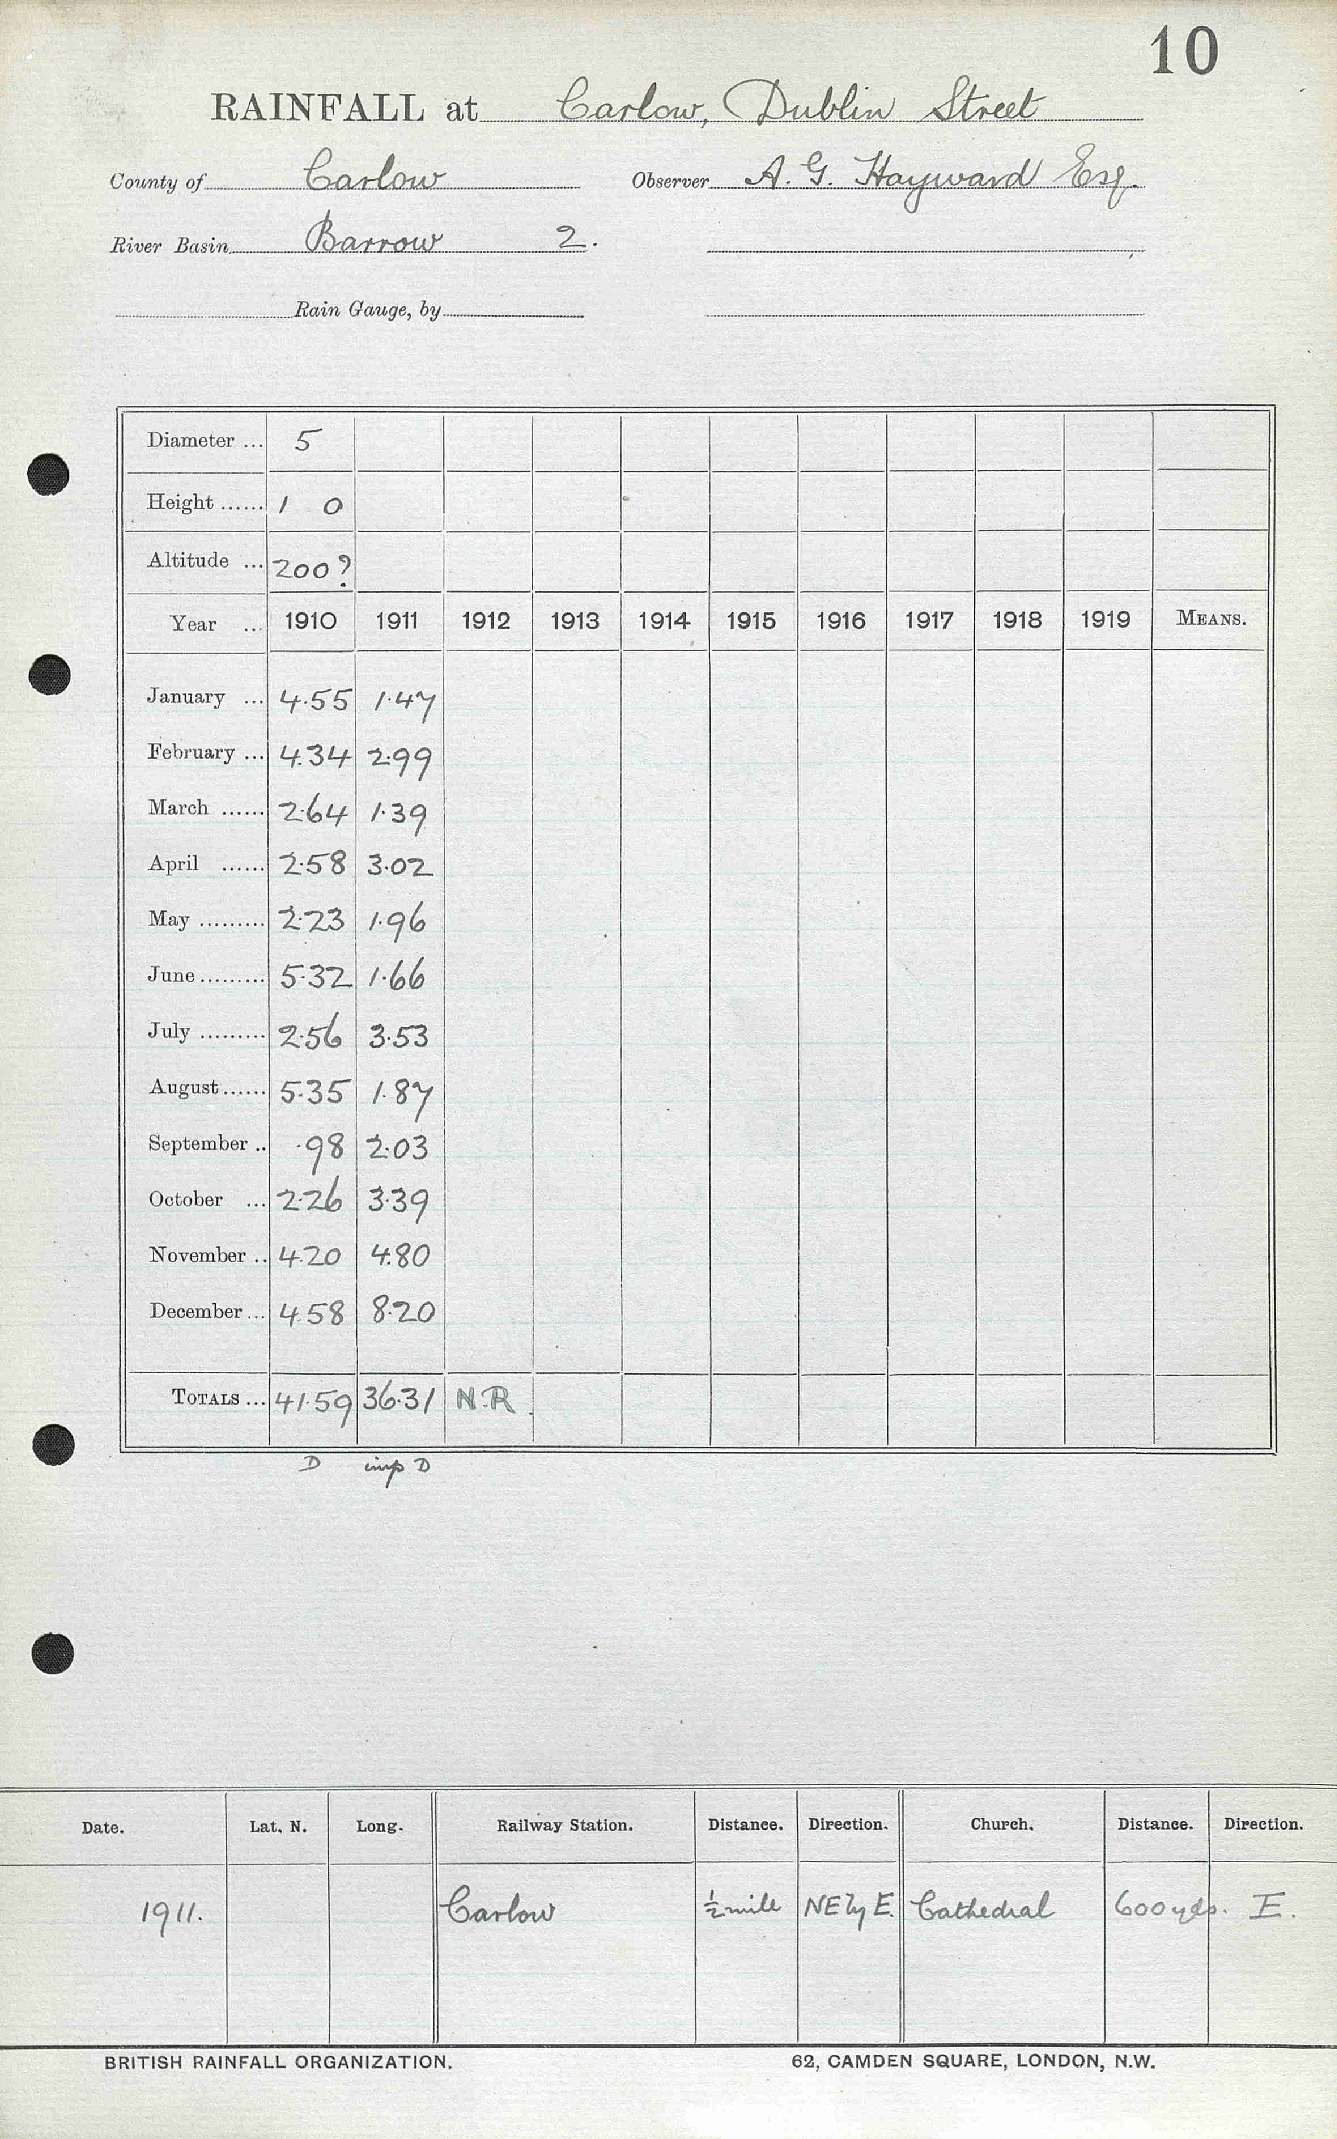 10
RAINFALL at Carlow, Dublin Street
County of Carlow Observer A. G. Hayward Esq.
River Basin Barrow 2.
Rain Gauge, by
Diameter ... 5
Height ...... 1 0
Altitude ... 200?
Year ... 1910 1911 1912 1913 1914 1915 1916 1917 1918 1919 MEANS.
January ... 4.55 1.47
February ... 4.34 2.99
March ...... 2.64 1.39
April ...... 2.58 3.02
May ......... 2.23 1.96
June ......... 5.32 1.66
July ......... 2.56 3.53
August ...... 5.35 1.87
September .. .98 2.03
October ... 2.26 3.39
November .. 4.20 4.80
December ... 4.58 8.20
TOTALS ... 41.59 36.31 N.R.
D imp D
Date. Lat. N. Long. Railway Station. Distance. Direction. Church. Distance. Direction.
1911. Carlow ½ mile NE by E. Cathedral 600 yds. E.
BRITISH RAINFALL ORGANIZATION. 62, CAMDEN SQUARE, LONDON, N.W.